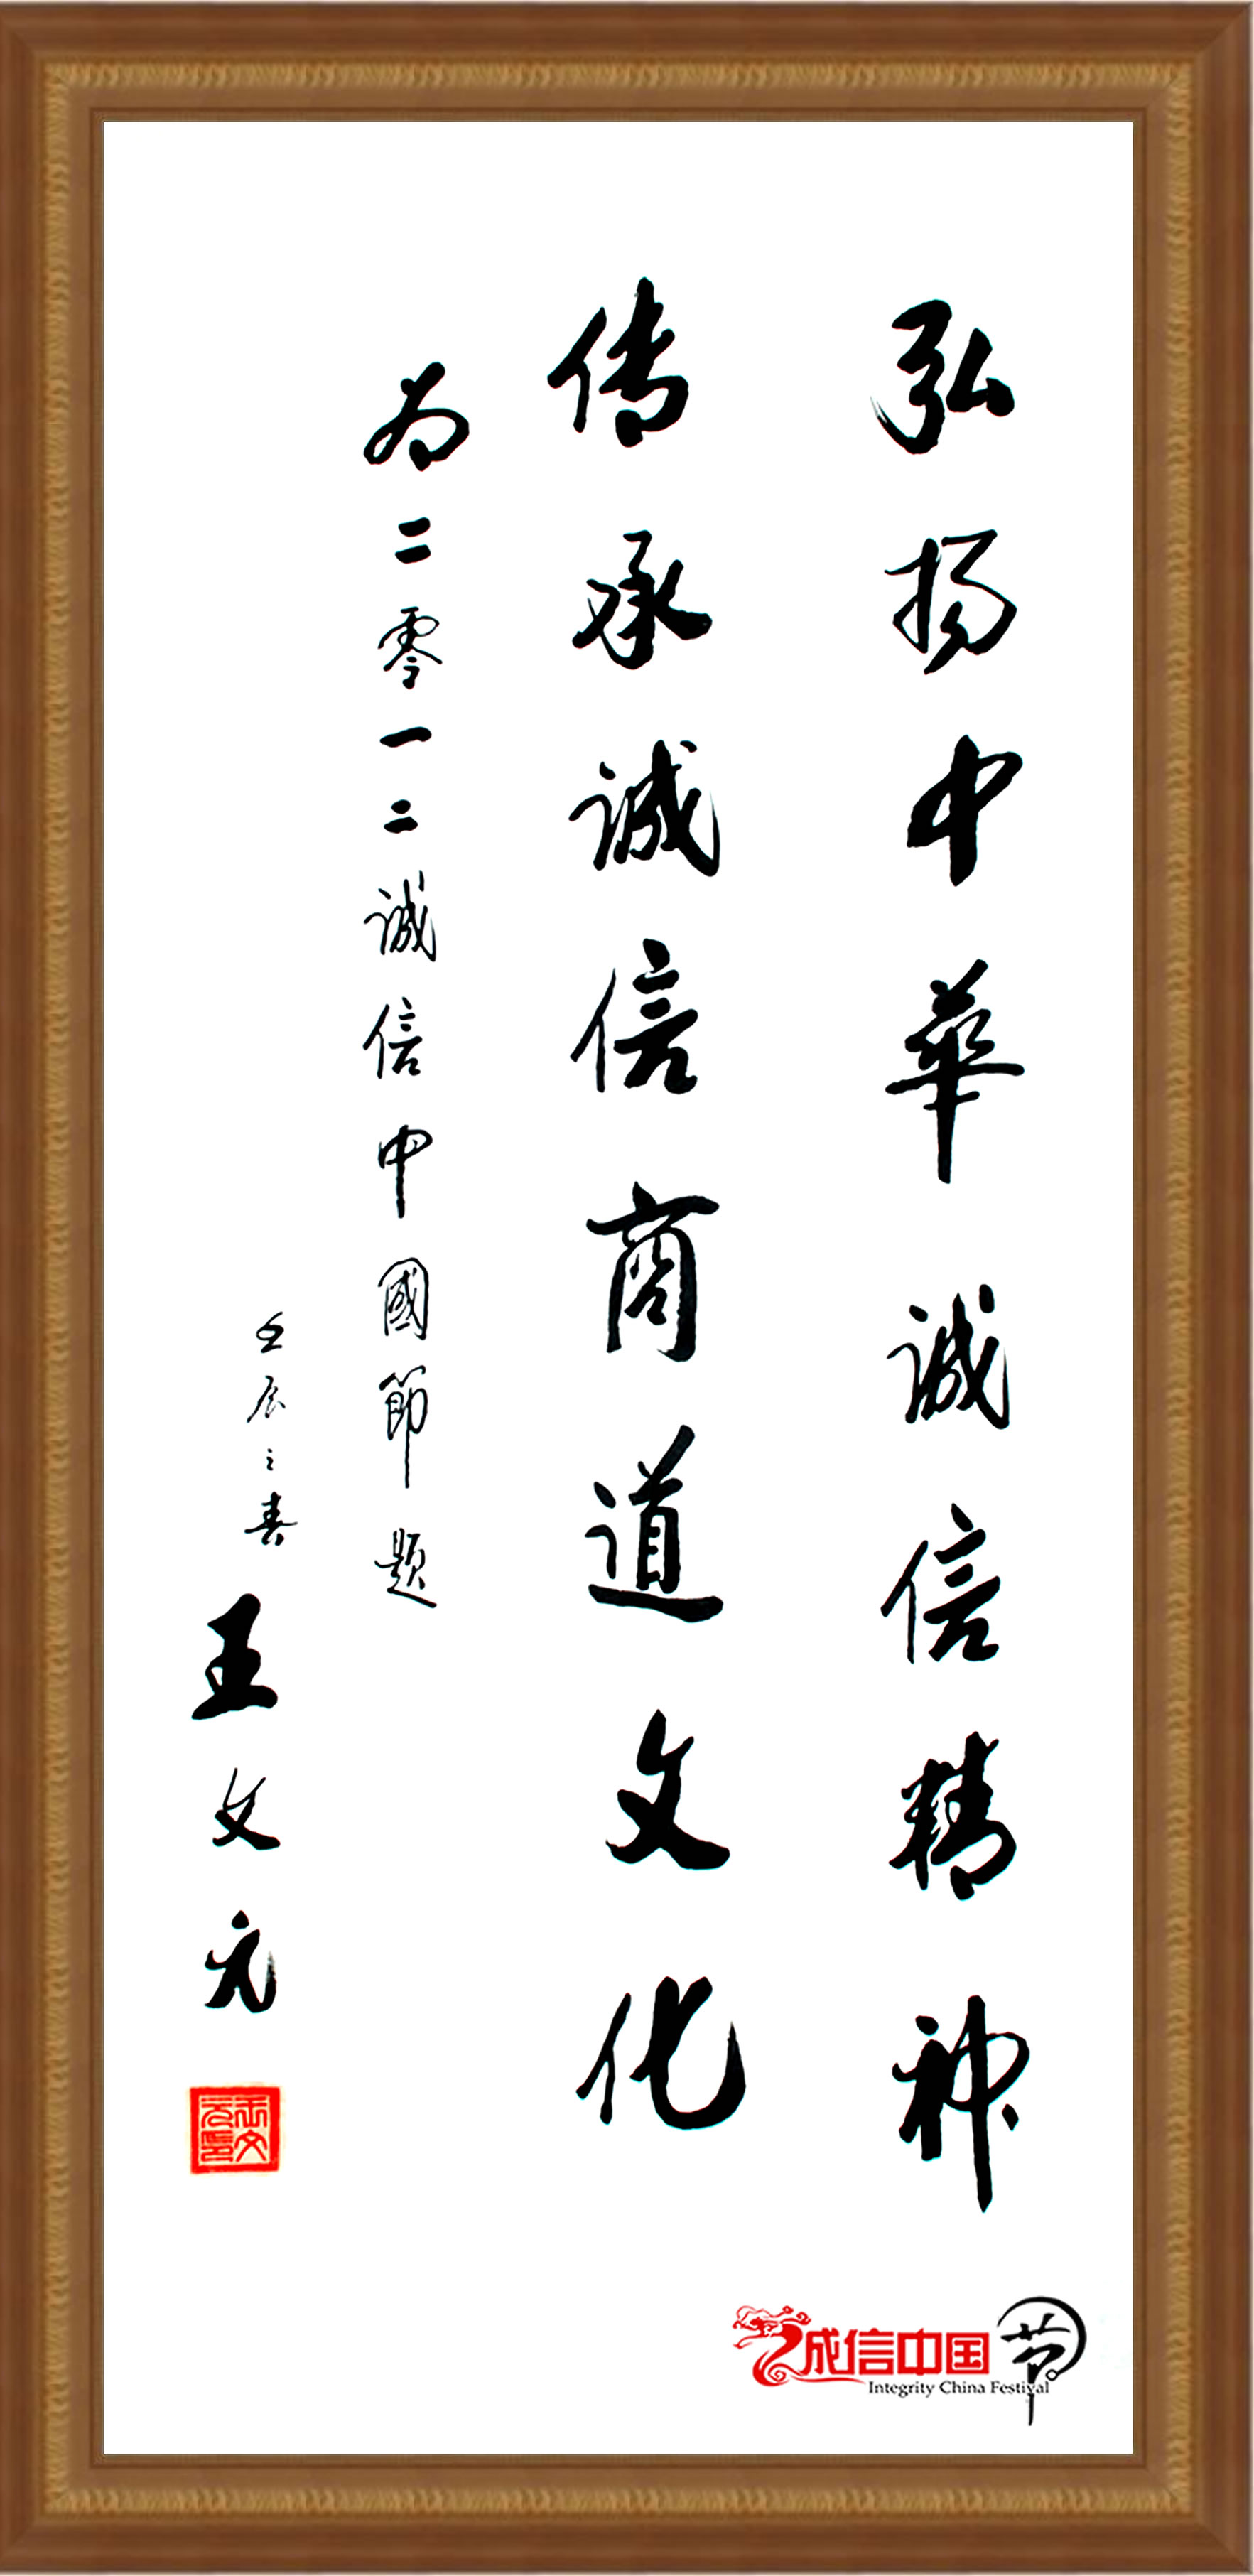 弘扬中華诚信精神
传承诚信商道文化
为二零一二诚信中國節题
壬辰之春
王文元
王文元印
诚信中国节
Integrity China Festival